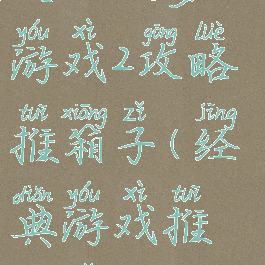 yóu xì gōng lüè
游戏2攻略
tuī xiāng zǐ jīng
推箱子(经
diǎn yóu xì tuī
典游戏推